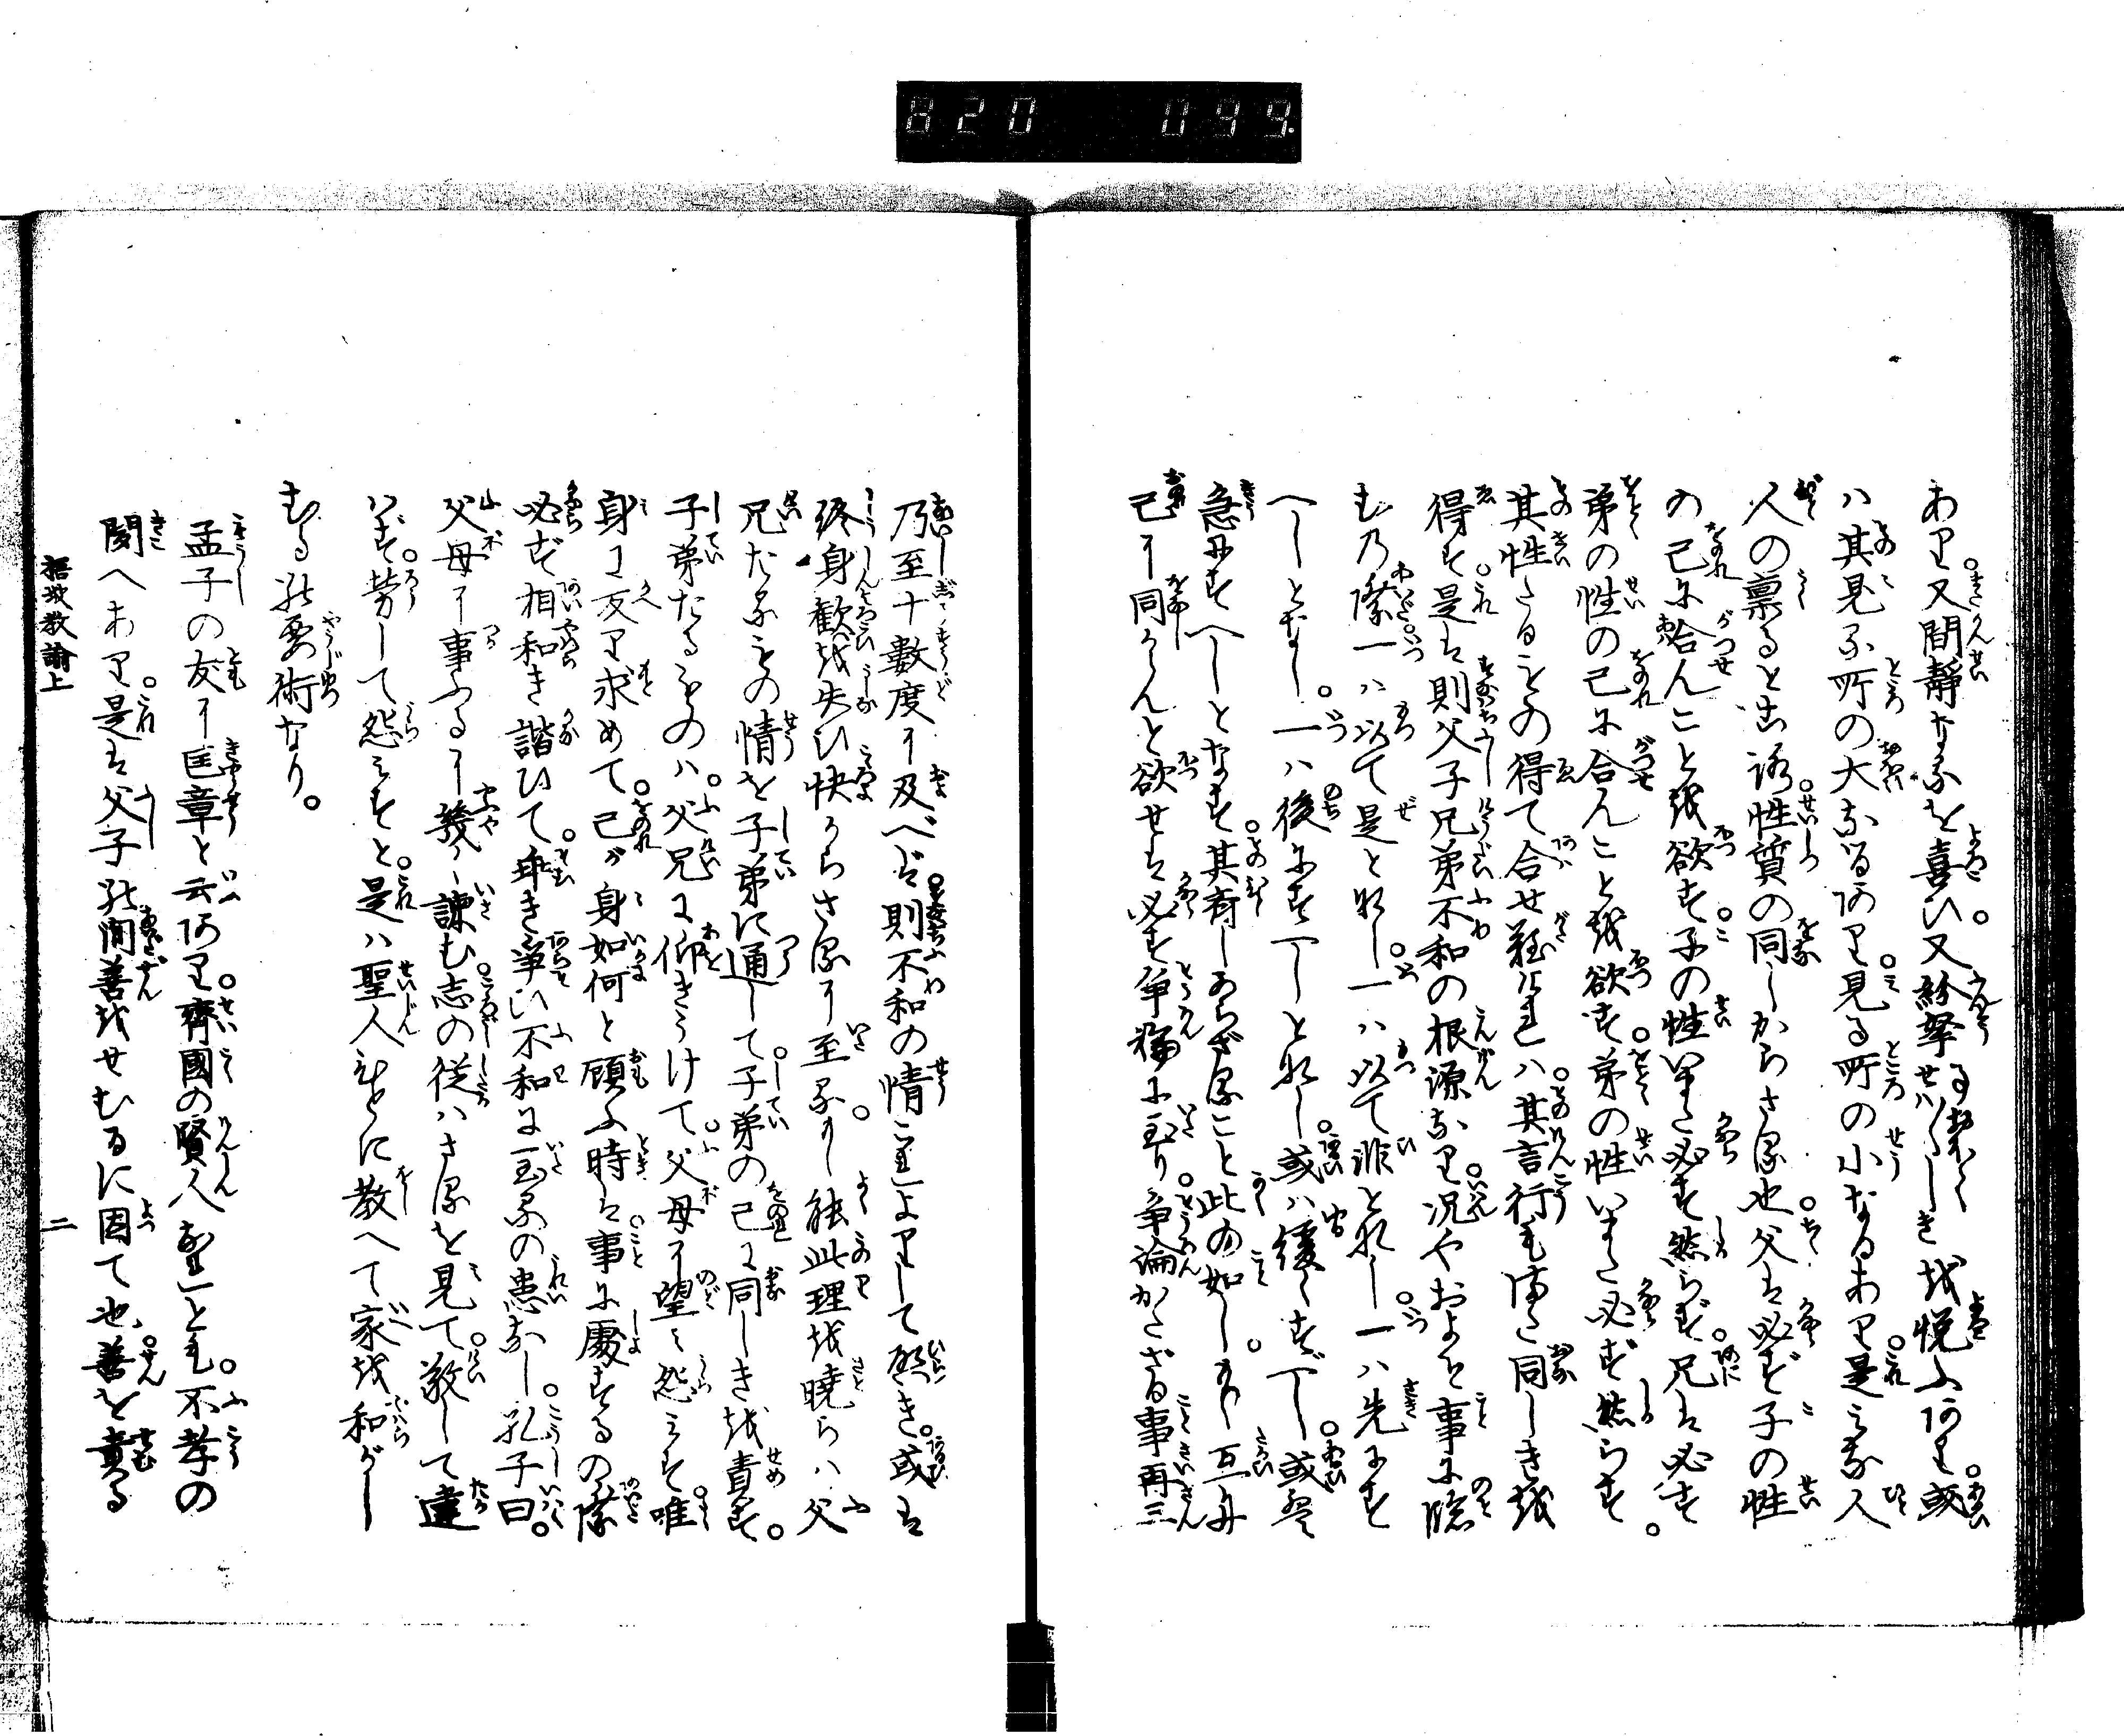 820 099.
あり又間靜なるを喜び。又紛拏せハしきを悦ふあり。或
ハ其見る所の大なるあり。見る所の小なるあり。是みな人
人の禀ると云。性質の同しからさる也。父は必ず子の性
の己に合んことを欲す。子の性いまた必す然らず。兄は必す
弟の性の己に合んことを欲す。弟の性いまた必ず然らす。
其性たるもの得て合せ難けれハ。其言行もまた同しきを
得す。是は則父子兄弟不和の根源なり。况やおよそ事に臨
むの際一ハ以て是と為し。一ハ以て非と為し。一ハ先にす
へしとなし。一ハ後にすべしと為し。或ハ緩くすべし。或は
急にすへしとなす。其齊しからざること此の如し。若し互に
己に同うせんと欲せは必す争論に至り。争論かたざる事再三
乃至十數度に及べば。則不和の情こゝによりして啓き。或は
終身歡を失ひ快からさるに至る。若し能此理を曉らハ父
兄たるもの情を子弟に通して。子弟の己に同しきを責す。
子弟たるものハ。父兄に仰きうけて。父母に望み怨みす唯
身に反り求めて。己が身如何と顧ふ時は。事に處するの際
必ず相和き諧ひて。乖き争い不和に至るの患なし。孔子曰。
父母に事ふるに幾く諫む。志の從ハさるを見て。敬して違
はず。勞して怨みすと。是ハ聖人ひとに教へて家を和がし
むる the要術なり。
孟子の友に匡章と云あり。齊國の賢人なれとも。不孝の
聞へあり。是は父子の間善をせむるに因て也。善を責る
二